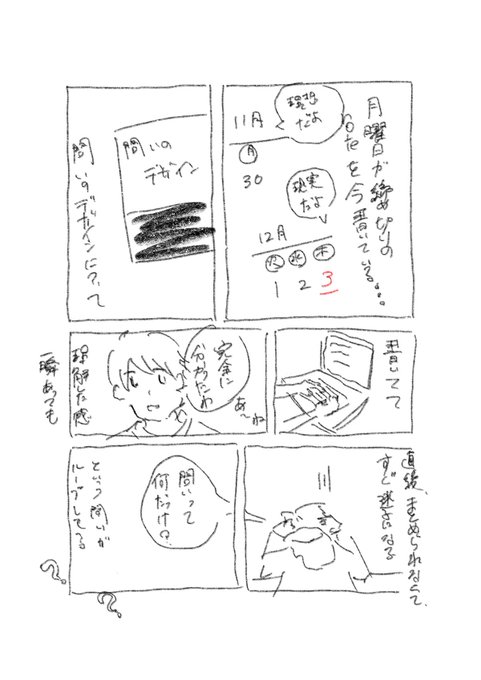 月曜日が締め切りの
noteを今書いている…。
理想
だよ
11月
月
30
現実
だよ
12月
火 水 木
1 2 3
問いの
デザイン
問いのデザインについて
書いてて
あ〜ね
完全に
分かったわ
理解した感
一瞬あっても
直後、まとめられなくて、
すぐ迷子になる
問いって
何だっけ?
という問いが
ループしてる
?
?